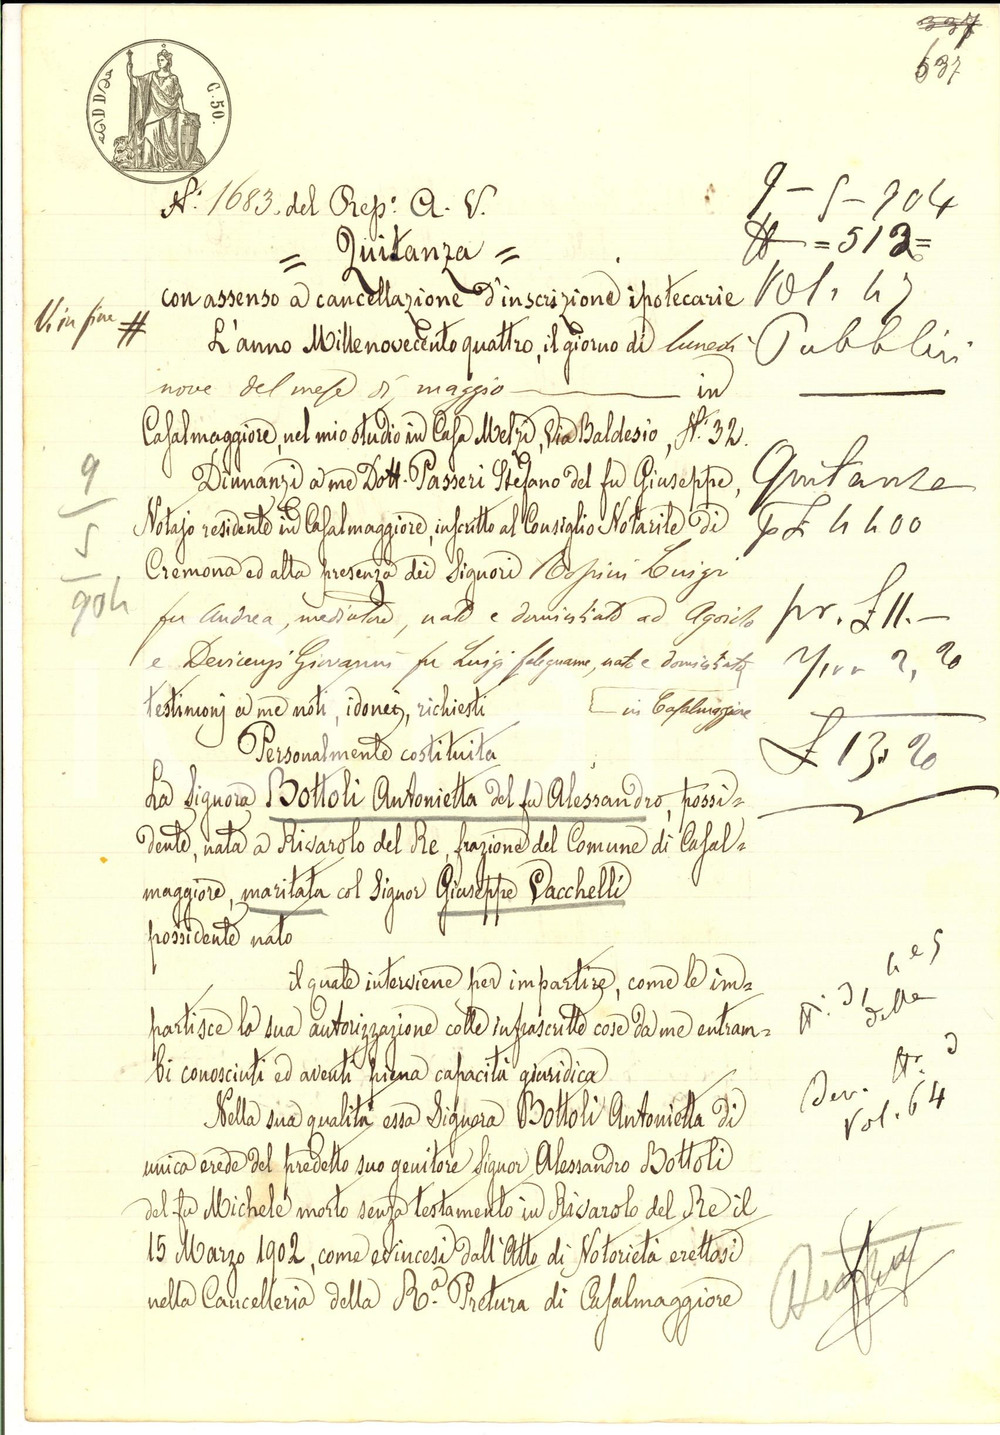 337
637
C. 50.
N.º 1683 del Rep.º A. V.
= Quitanza =
con assenso a cancellazione d'inscrizione ipotecarie
V. in fine #
L'anno Millenovecentoquattro, il giorno di lunedì
nove del mese di maggio in
Casalmaggiore, nel mio studio in Casa Melzi, Via Baldesio, N.º 32.
Dinnanzi a me Dott. Passeri Stefano del fu Giuseppe,
Notajo residente in Casalmaggiore, inscritto al Consiglio Notarile di
Cremona ed alla presenza dei Signori Luigi
fu Andrea, mediatore, nato e domiciliato ad
e Devicenzi Giovanni fu Luigi falegname, nato e domiciliato
in Casalmaggiore
testimonj a me noti, idonei, richiesti
Personalmente costituita
La Signora Bottoli Antonietta del fu Alessandro, possi=
dente, nata a Rivarolo del Re, frazione del Comune di Casal=
maggiore, maritata col Signor Giuseppe Vacchelli
possidente nato
il quale interviene per impartire, come le im=
partisce la sua autorizzazione colle infrascritte cose da me entram=
bi conosciuti ed aventi piena capacità giuridica
Nella sua qualità essa Signora Bottoli Antonietta di
unica erede del predetto suo genitore Signor Alessandro Bottoli
del fu Michele morto senza testamento in Rivarolo del Re il
15 Marzo 1902, come evincesi dall'Atto di Notorietà erettosi
nella Cancelleria della R.ª Pretura di Casalmaggiore
9 - 5 - 904
N = 512 =
Vol. 47
Pubblici
Quitanza
p £ 4400
pr. £ 11. -
2, 20
£ 13, 20
9
5
904
delle
N. 3
Vol. 64